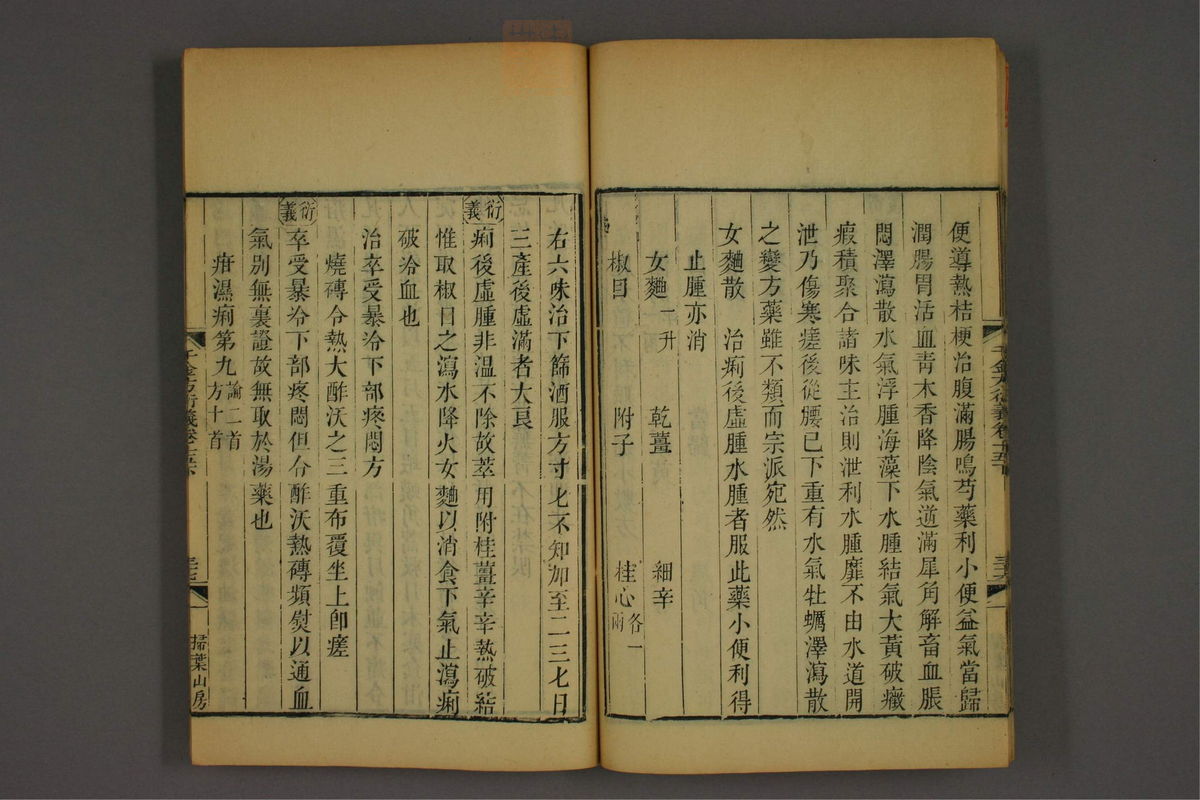 便導熱桔梗治腹滿腸鳴芍藥利小便益氣當歸
潤腸胃活血青木香降陰氣逆滿犀角解畜血脹
悶澤瀉散水氣浮腫海藻下水腫結氣大黃破癥
瘕積聚合諸味主治則泄利水腫靡不由水道開
泄乃傷寒瘥後從腰已下重有水氣牡蠣澤瀉散
之變方藥雖不類而宗派宛然
女麯散　治痢後虛腫水腫者服此藥小便利得
止腫亦消
女麯一升　乾薑　細辛
椒目　附子　桂心各一兩
右六味治下篩酒服方寸匕不知加至二三七日
三產後虛滿者大良
衍義　痢後虛腫非温不除故萃用附桂薑辛辛熱破結
惟取椒目之瀉水降火女麯以消食下氣止瀉痢
破冷血也
治卒受暴冷下部疼悶方
燒磚令熱大酢沃之三重布覆坐上卽瘥
衍義　卒受暴冷下部疼悶但令酢沃熱磚頻熨以通血
氣別無裏證故無取於湯藥也
疳濕痢第九論二首方十首
千金方衍義卷
掃葉山房